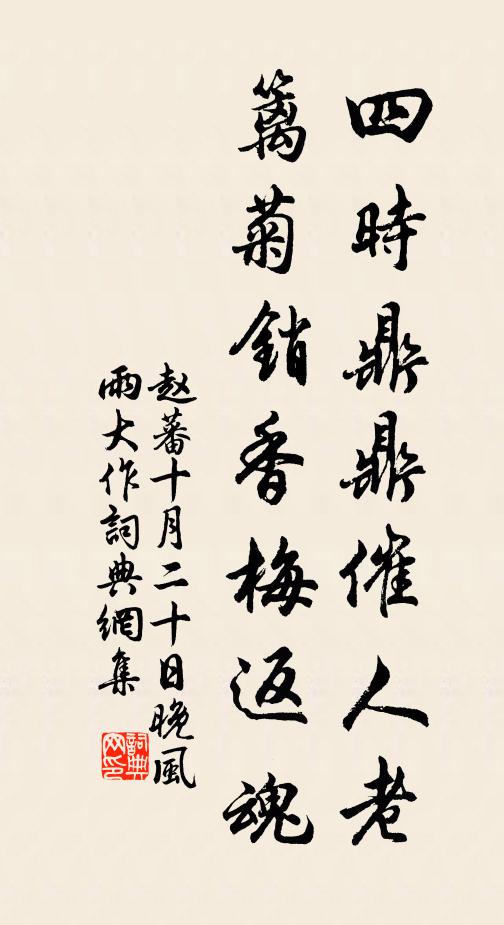 四時鼎鼎催人老
籬菊銷香梅返魂
赵蕃十月二十日晚風
雨大作詞典網集
詞典
网印